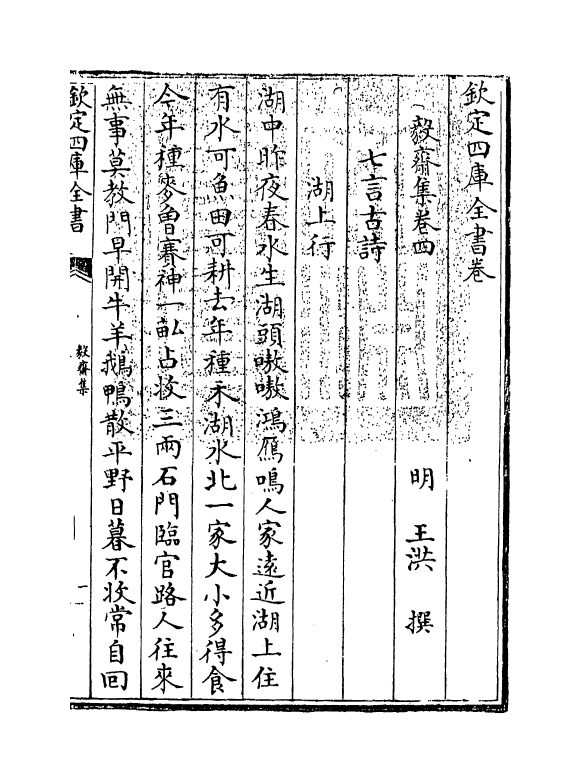 欽定四庫全書卷
毅齋集卷四
明 王洪 撰
七言古詩
湖上行
湖中昨夜春水生湖頭嗷嗷鴻鴈鳴人家遠近湖上住
有水可魚田可耕去年種禾湖水北一家大小多得食
今年種麥曾賽神一畝占收三兩石門臨官路人往來
無事莫教門早開牛羊鵝鴨散平野日暮不收常自回
欽定四庫全書
毅齋集
一